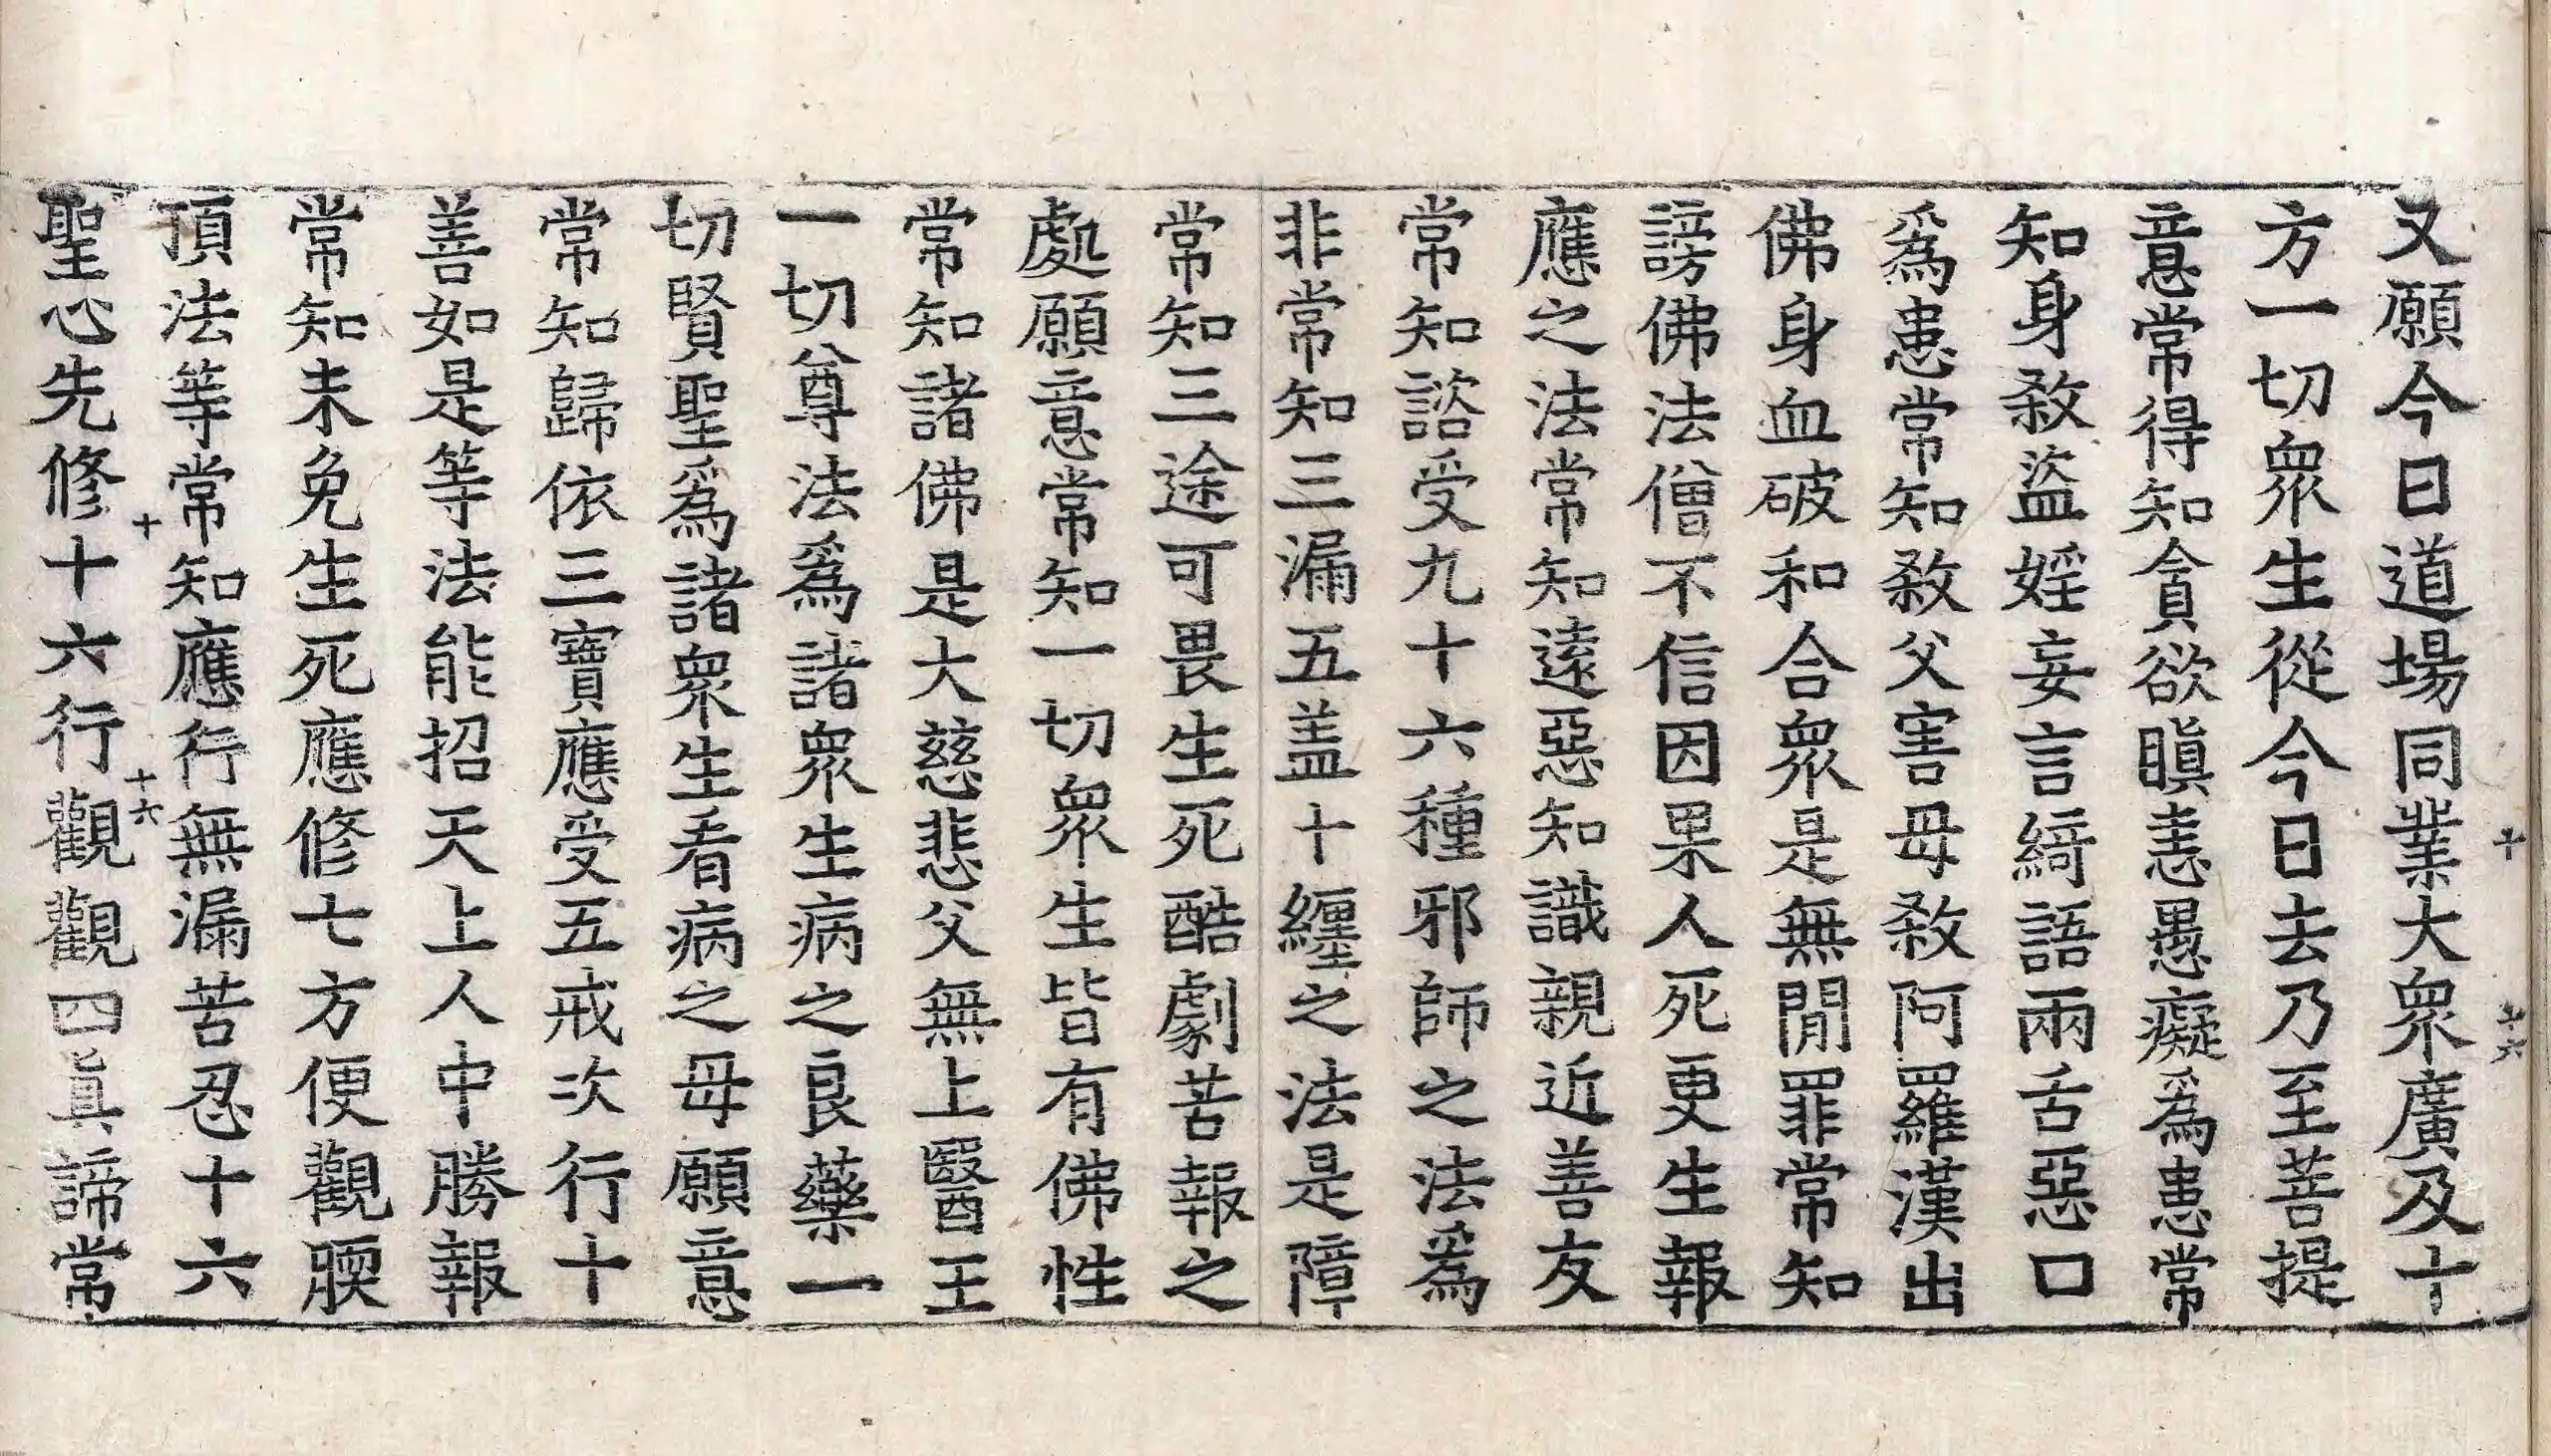 又願今日道場同業大衆廣及十
方一切衆生從今日去乃至菩提
意常得知貪欲瞋恚愚癡爲患常
知身殺盜婬妄言綺語兩舌惡口
爲患常知殺父害母殺阿羅漢出
佛身血破和合衆是無閒罪常知
謗佛法僧不信因果人死更生報
應之法常知遠惡知識親近善友
常知諮受九十六種邪師之法爲
非常知三漏五盖十纏之法是障
常知三途可畏生死酷劇苦報之
處願意常知一切衆生皆有佛性
常知諸佛是大慈悲父無上醫王
一切尊法爲諸衆生病之良藥一
切賢聖爲諸衆生看病之母願意
常知歸依三寶應受五戒次行十
善如是等法能招天上人中勝報
常知未免生死應修七方便觀㬉
頂法等常知應行無漏苦忍十六
聖心先修十六行觀觀四眞諦常
十
十六
十
十六